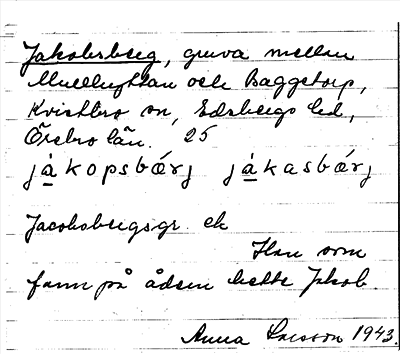 Jakobsberg, gruva mellan
Mullhyttan och Baggetorp,
Kvistbro sn, Edsbergs hd,
Örebro län. 25
jàkopsbærj jàkasbærj
Jacobsbergsgr. ek
Han som
fann på ådern hette Jakob
Anna Larsson 1943.